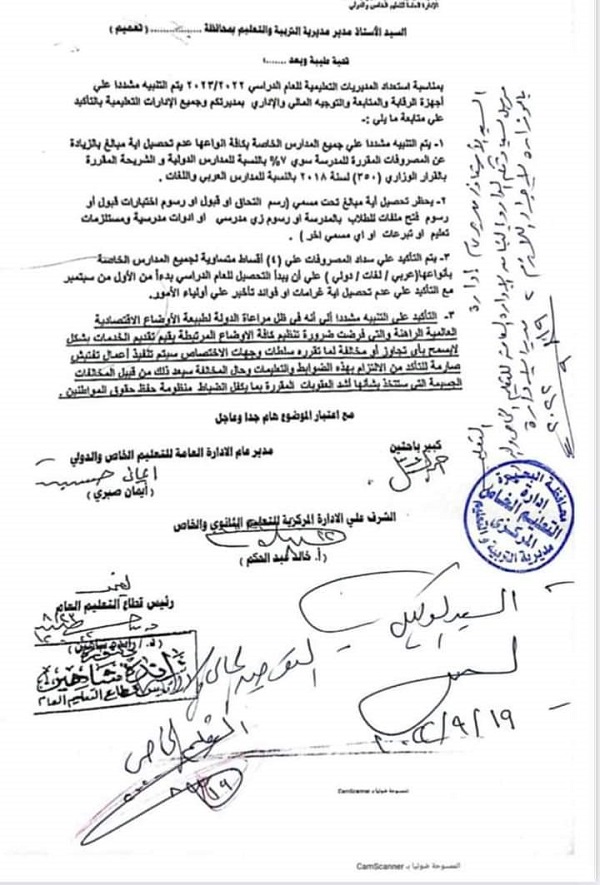 الإدارة العامة للتعليم الخاص والدولي
السيد الأستاذ مدير مديرية التربية والتعليم بمحافظة ................ ( تعميم )
تحية طيبة وبعد ......؛
بمناسبة استعداد المديريات التعليمية للعام الدراسي ٢٠٢٣/٢٠٢٢ يتم التنبيه مشددا علي
أجهزة الرقابة والمتابعة والتوجيه المالي والإداري بمديرتكم وجميع الإدارات التعليمية بالتأكيد
علي متابعة ما يلي :-
١- يتم التنبيه مشددا علي جميع المدارس الخاصة بكافة انواعها عدم تحصيل اية مبالغ بالزيادة
عن المصروفات المقررة للمدرسة سوي ٧% بالنسبة للمدارس الدولية و الشريحة المقررة
بالقرار الوزاري (٣٥٠) لسنة ٢٠١٨ بالنسبة للمدارس العربي واللغات .
٢- يحظر تحصيل أية مبالغ تحت مسمي (رسم التحاق او قبول او رسوم اختبارات قبول أو
رسوم فتح ملفات للطلاب بالمدرسة او رسوم زي مدرسي او ادوات مدرسية ومستلزمات
تعليم او تبرعات او اي مسمي اخر ) .
٣- يتم التأكيد علي سداد المصروفات علي (٤) أقساط متساوية لجميع المدارس الخاصة
بأنواعها(عربي / لغات / دولي ) علي أن يبدأ التحصيل للعام الدراسي بدءاً من الأول من سبتمبر
مع التأكيد علي عدم تحصيل اية غرامات او فوائد تأخير علي أولياء الأمور.
٣- التأكيد علي التنبيه مشددا إلي أنه في ظل مراعاة الدولة لطبيعة الأوضاع الاقتصادية
العالمية الراهنة والتي فرضت ضرورة تنظيم كافة الاوضاع المرتبطة بقيم تقديم الخدمات بشكل
لايسمح بأي تجاوز أو مخالفة لما تقرره سلطات وجهات الاختصاص سيتم تنفيذ أعمال تفتيش
صارمة للتأكد من الالتزام بهذه الضوابط والتعليمات وحال المخالفة سيعد ذلك من قبيل المخالفات
الجسيمة التي ستتخذ بشأنها أشد العقوبات المقررة بما يكفل انضباط منظومة حفظ حقوق المواطنين .
مع اعتبار الموضوع هام جدا وعاجل
كبير باحثين
مدير عام الادارة العامة للتعليم الخاص والدولي
( أيمان صبري )
الشرف علي الادارة المركزية للتعليم الثانوي والخاص
( أ. خالد عبد الحكم )
رئيس قطاع التعليم العام
محافظة البحيرة
إدارة
التعليم الخاص
المركزى
مديرية التربية و التعليم
السيد الوكيل
٢٠٢٢/٩/١٩
التعليم الخاص
الممسوحة ضوئيا بـ CamScanner
الممسوحة ضوئيا بـ CamScanner